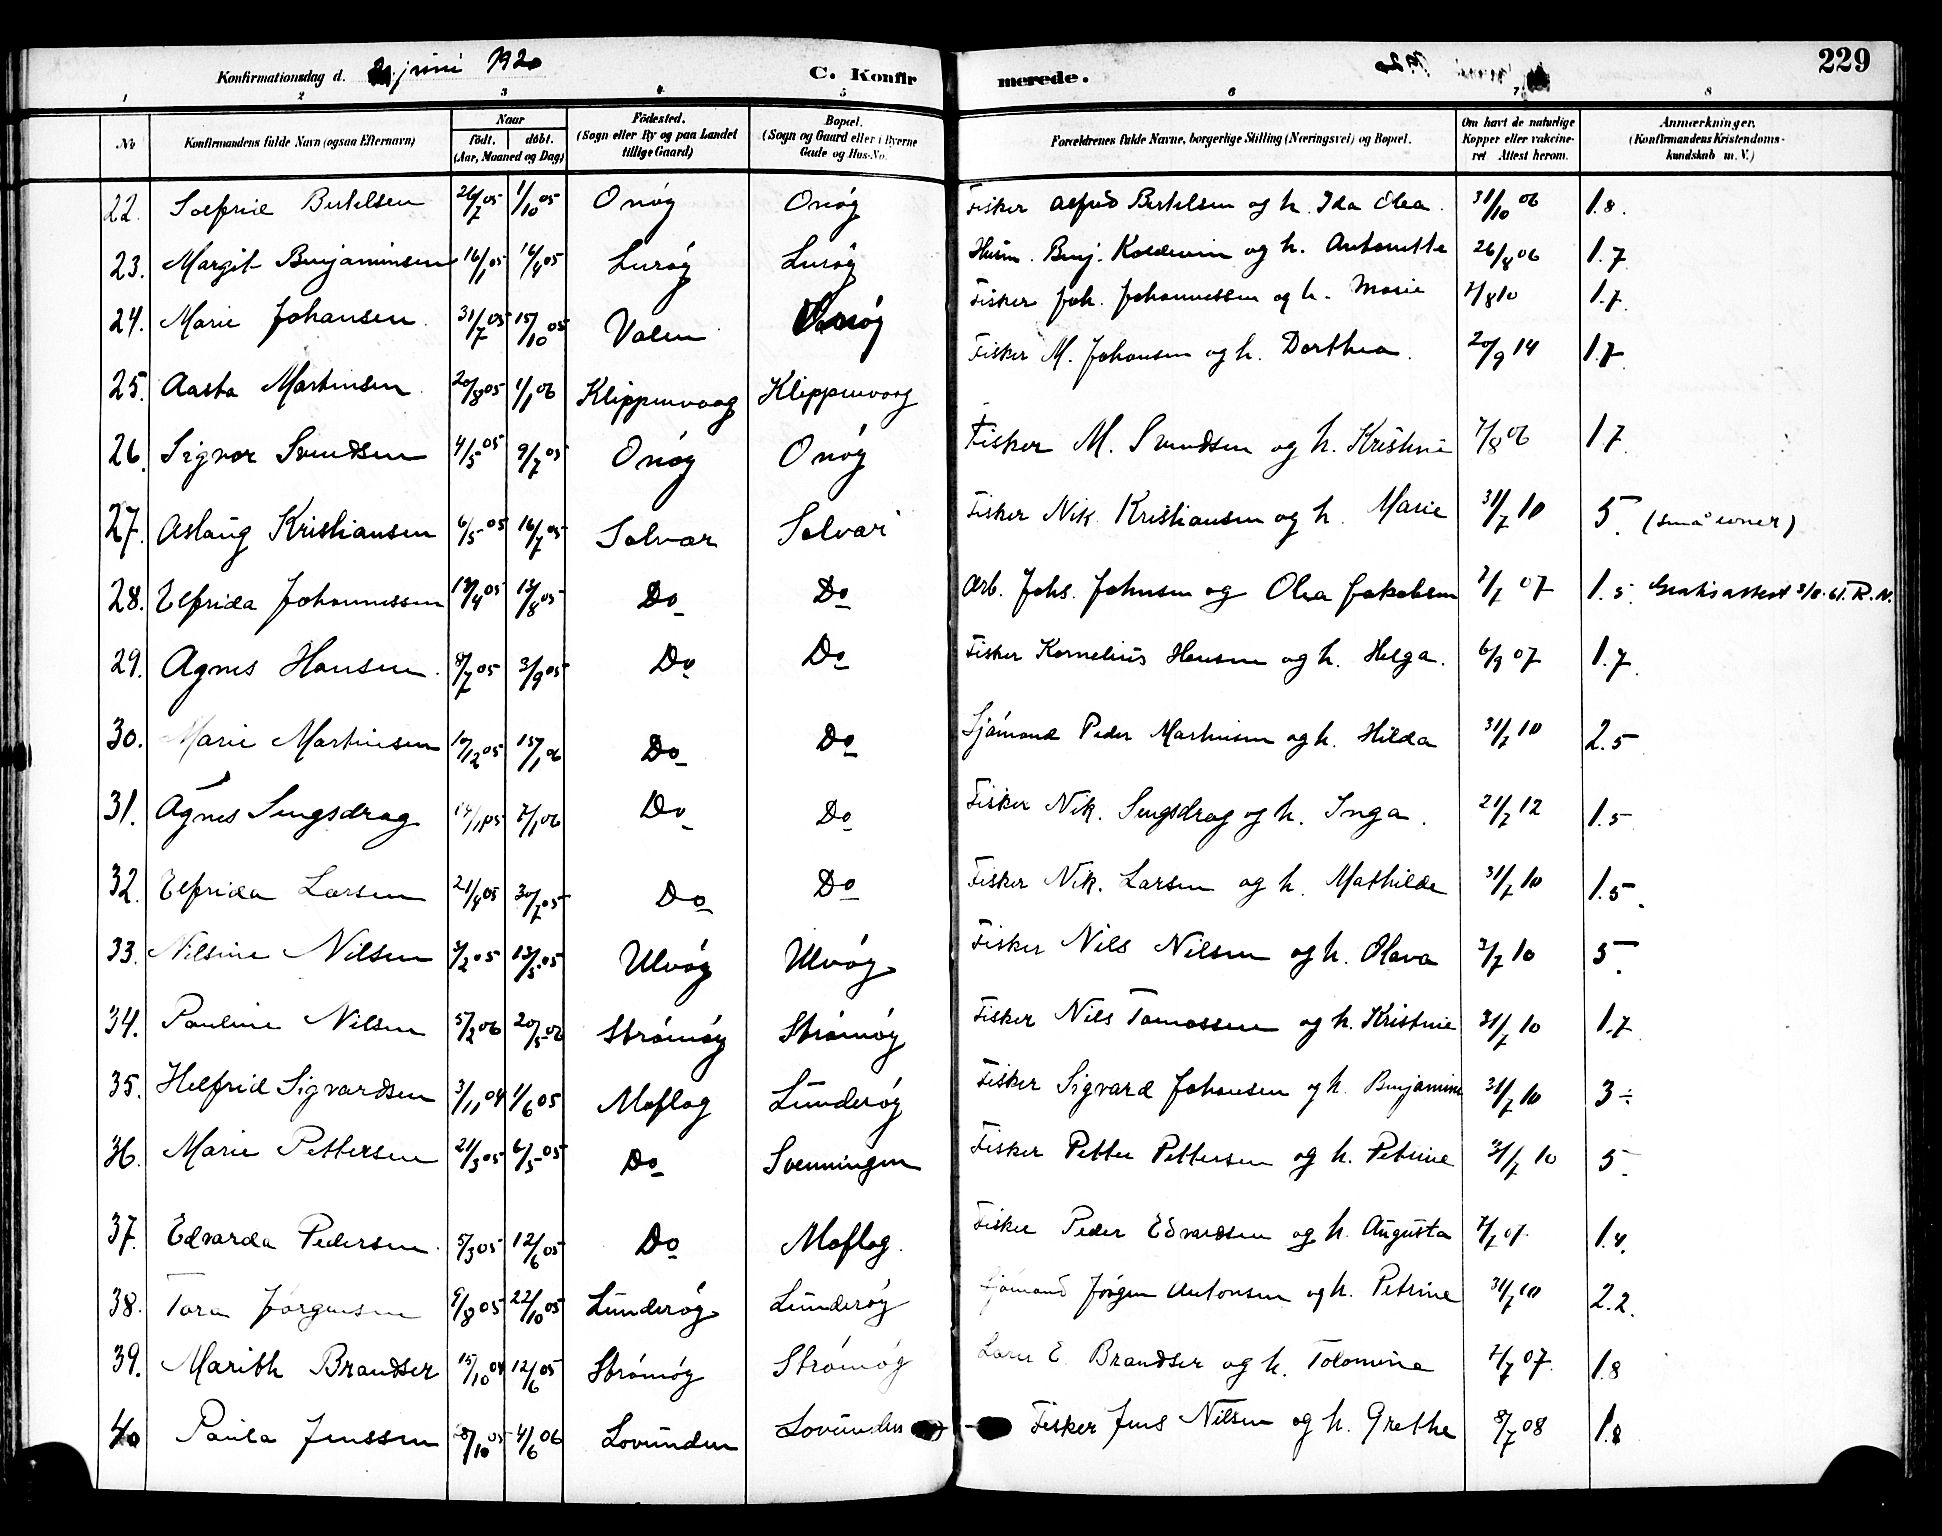 Konfirmationsdag d. juni 1920 C. Konfirmerede. 229
1 2 3 4 5 6 7 8
No Konfirmandens fulde Navn (ogsaa Efternavn) Naar født. døbt. (Aar, Maaned og Dag) Födested. (Sogn eller By og paa Landet tillige Gaard) Bopæl. (Sogn og Gaard eller i Byerne Gade og Hus-No. Forældrenes fulde Navne, borgerlige Stilling (Næringsvei) og Bopæl. Om havt de naturlige Kopper eller vakcineret Attest herom. Anmærkninger. (Konfirmandens Kristendomskundskab m. V.)
22. Solfrid Bertelsen 26/7 05 1/10 05 Onøy Onøy Fisker Alfred Bertelsen og h. Ida Olea. 31/10 06 1.8.
23. Margit Benjaminsen 16/1 05 16/4 05 Lurøy Lurøy Husm. Benj. og h. Antonette 26/8 06 1.7
24. Marie Johansen 31/7 05 15/10 05 Valen Onøy Fisker Joh. Johannessen og h. Marie 7/8 10 1.7.
25. Aasta Martinsen 20/8 05 1/1 06 Klippenvaag Klippenvaag Fisker M. Johansen og h. Dorthea. 20/9 14 1.7
26. Sigvor Svendsen 4/5 05 9/7 05 Onøy Onøy Fisker M. Svendsen og h. Kristine 7/8 06 1.7
27. Aslaug Kristiansen 6/5 05 16/7 05 Selvær Selvær Fisker Nik. Kristiansen og h. Marie 31/7 10 5. (små evner)
28. Elfrida Johannessen 14/4 05 13/8 05 Do Do Arb. Johs. Johnsen og Olea Jakobsen 7/7 07 1.5. Gratisattest 3/8-61. R.N.
29. Agnes Hansen. 8/7 05 3/9 05 Do Do Fisker Kornelius Hansen og h. Helga. 6/9 07 1.7.
30. Marie Martinsen 10/12 05 15/1 06 Do Do Sjømand Peder Martinsen og h. Hilda 31/7 10 2.5
31. Agnes Sengsdrag 14/11 05 7/1 06 Do Do Fisker Nik. Sengsdrag og h. Inga. 21/7 12 1.5
32. Elfrida Larsen 21/4 05 30/7 05 Do Do Fisker Nik. Larsen og h. Mathilde 31/7 10 1.5.
33. Nilsine Nilsen 3/2 05 13/5 05 Ulvøy Ulvøy Fisker Nils Nilsen og h. Olava 3/7 10 5.
34. Pauline Nilsen 5/2 06 20/5 06 Strømøy Strømøy Fisker Nils Tomassen og h. Kristine 31/7 10 1.7
35. Helfrid Sigvardsen 3/11 04 1/6 05 Moflag Lunderøy Fisker Sigvard Johansen og h. Benjamine 31/7 10 3÷
36. Marie Pettersen 21/3 05 6/5 05 Do Svenningen Fisker Petter Pettersen og h. Petrine 31/7 10 5
37. Edvarda Pedersen. 5/3 05 12/6 05 Do Moflag. Fisker Peder Edvardsen og h. Augusta 7/7 07. 1.4.
38. Tora Jørgensen 9/8 05 22/10 05 Lunderøy Lunderøy Sjømand Jørgen Antonsen og h. Petrine 31/7 10 2.2.
39. Marith Brandser 15/10 04 12/6 05 Strømøy Strømøy Lærer E. Brandser og h. Tolomine 7/7 07. 1.8
40 Paula Jenssen 8/10 05 4/6 06 Lovunden Lovunden Fisker Jens Nilsen og h. Grethe 8/7 08 1.8